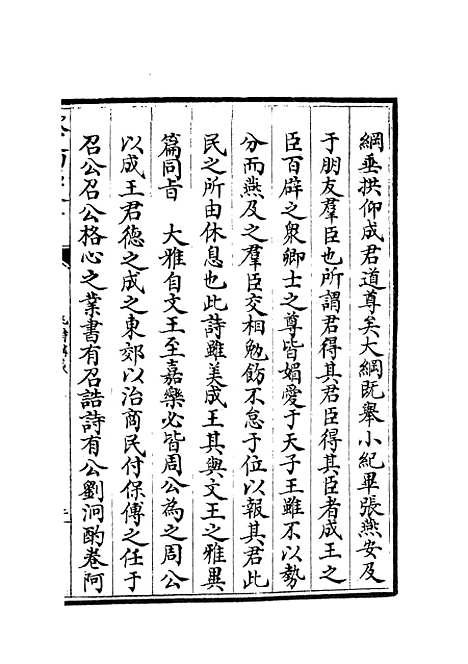 綱垂拱仰成君道尊矣大綱既舉小紀畢張燕安及
于朋友羣臣也所謂君得其君臣得其臣者成王之
臣百辟之衆卿士之尊皆媚愛于天子王雖不以勢
分而燕及之羣臣交相勉飭不怠于位以報其君此
民之所由休息也此詩雖美成王其與文王之雅異
篇同旨　大雅自文王至嘉樂必皆周公為之周公
以成王君德之成之東郊以治商民付保傅之任于
召公召公格心之業書有召誥詩有公劉泂酌卷阿